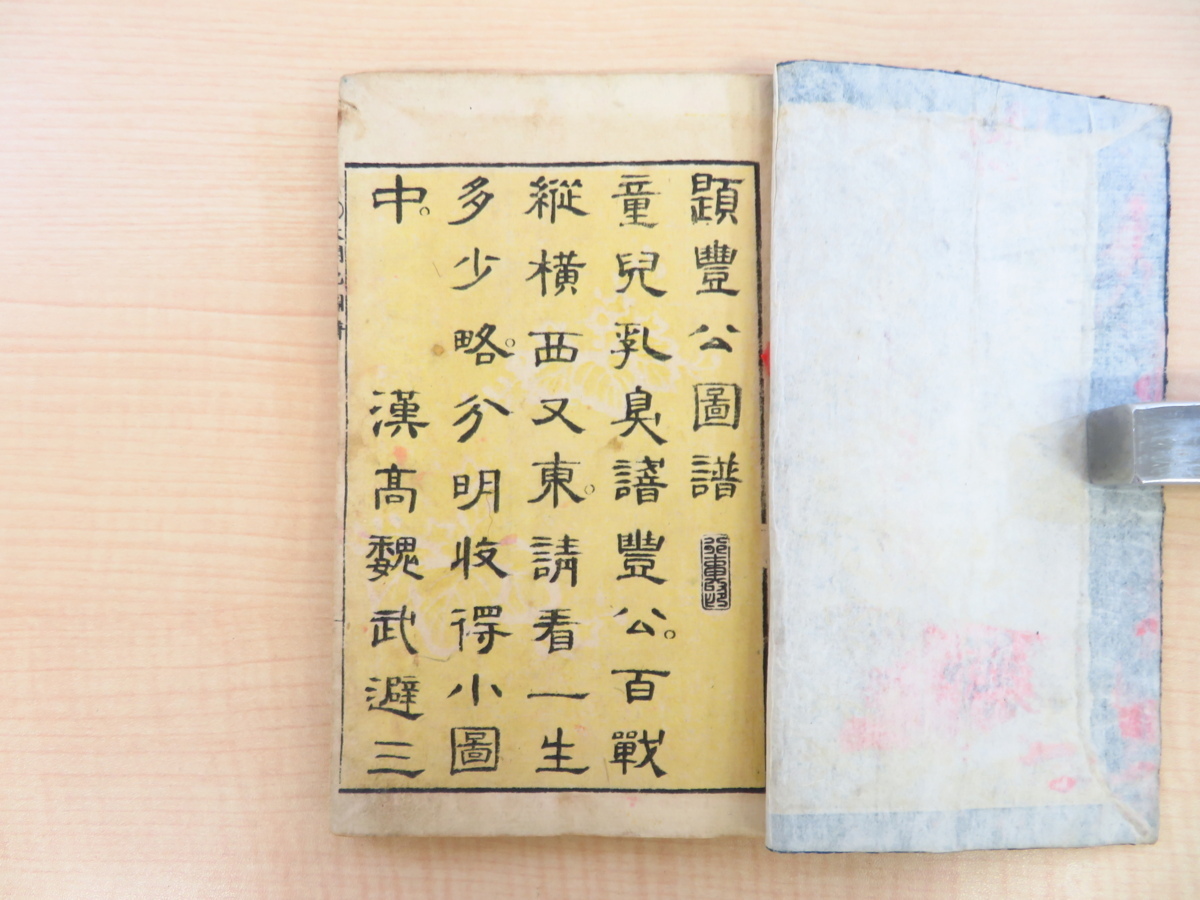 題豐公圖譜
童兒乳臭諳豐公。百戰
縱橫西又東。請看一生
多少略。分明收得小圖
中。　漢高魏武避三